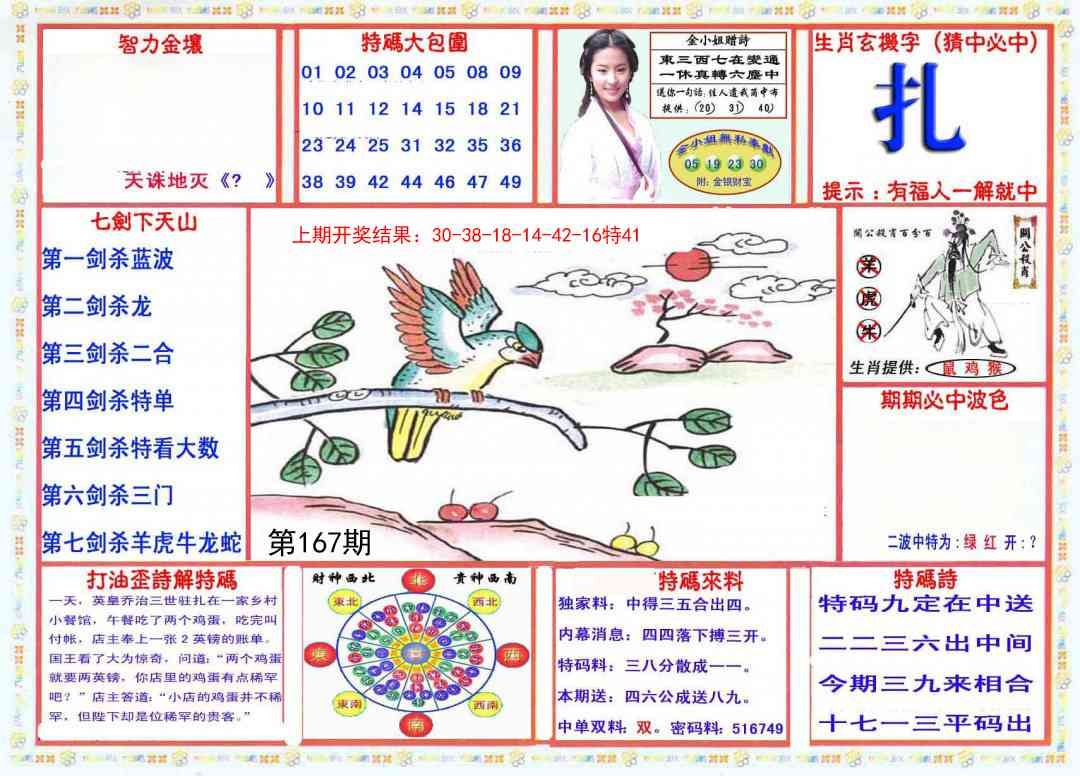 智力金壤
天诛地灭《? 》
特碼大包圍
01 02 03 04 05 08 09
10 11 12 14 15 18 21
23 24 25 31 32 35 36
38 39 42 44 46 47 49
金小姐贈詩
東三西七在變通
一休真轉六塵中
送你一句話:佳人遺我筒中布
提供:(20) 31) 40)
金小姐無私奉獻
05 19 23 30
附: 金银财宝
生肖玄機字(猜中必中)
扎
提示:有福人一解就中
七劍下天山
第一剑杀蓝波
第二剑杀龙
第三剑杀二合
第四剑杀特单
第五剑杀特看大数
第六剑杀三门
第七剑杀羊虎牛龙蛇
上期开奖结果: 30-38-18-14-42-16特41
第167期
關公殺肖百分百
關公殺肖
羊
虎
牛
生肖提供: 鼠 鸡 猴
期期必中波色
二波中特为:绿 红 开:?
打油歪詩解特碼
一天，英皇乔治三世驻扎在一家乡村
小餐馆，午餐吃了两个鸡蛋，吃完叫
付帐，店主奉上一张2英镑的账单。
国王看了大为惊奇，问道:“两个鸡蛋
就要两英镑，你店里的鸡蛋有点稀罕
吧？”店主答道:“小店的鸡蛋并不稀
罕，但陛下却是位稀罕的贵客。”
財神西北
貴神西南
北
東北
西北
西
東南
西南
南
特碼來料
独家料: 中得三五合出四。
内幕消息: 四四落下搏三开。
特码料: 三八分散成一一。
本期送: 四六公成送八九。
中单双料: 双。密码料: 516749
特碼詩
特码九定在中送
二二三六出中间
今期三九来相合
十七一三平码出